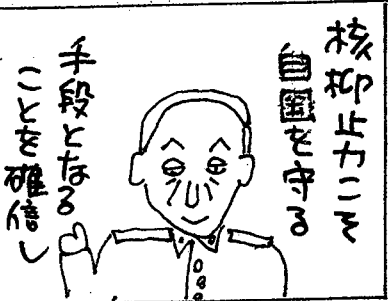 核抑止力こそ
自国を守る
手段となる
ことを確信し